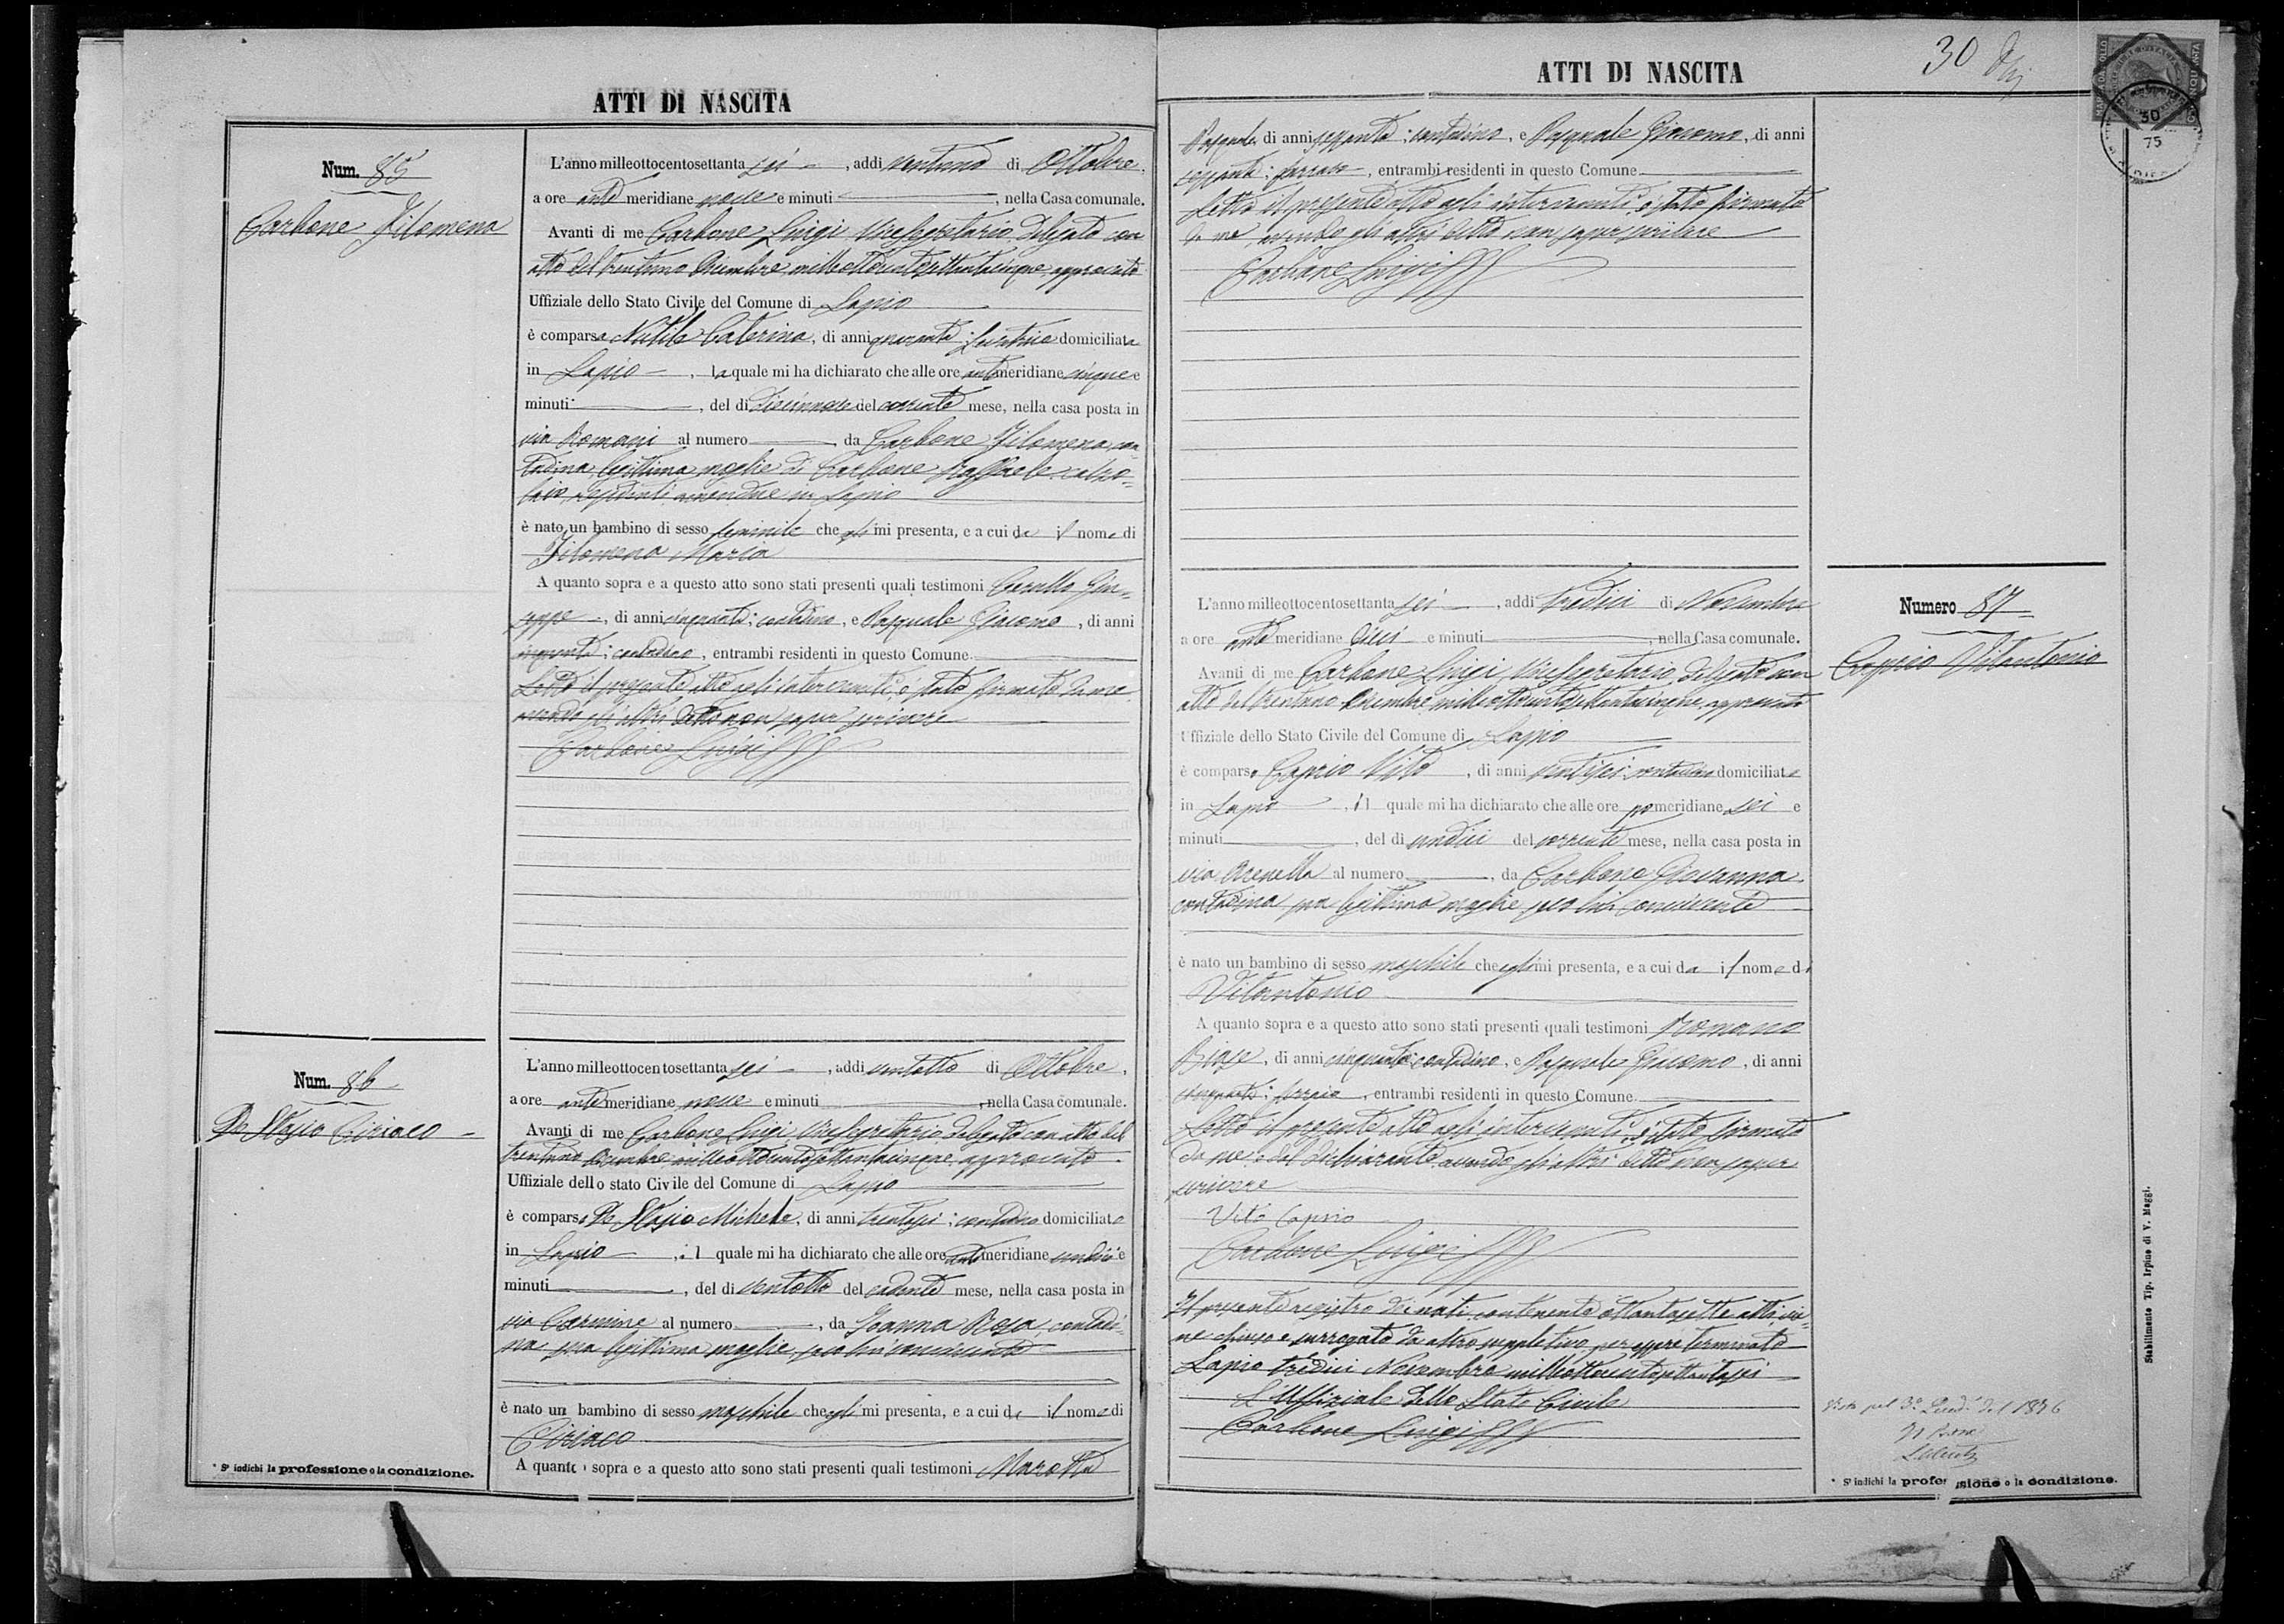 ATTI DI NASCITA
Num. 85
Carbone Filomena
L'anno milleottocentosettanta sei, addi ventuno di Ottobre,
a ore ante meridiane nove e minuti, nella Casa comunale.
Avanti di me Carbone Luigi Vicesegretario Delegato con
atto del trentuno Dicembre milleottocentosettantacinque approvato
Uffiziale dello Stato Civile del Comune di Lapio
è comparsa Nutile Caterina, di anni quaranta; levatrice domiciliata
in Lapio, la quale mi ha dichiarato che alle ore antemeridiane cinque e
minuti, del di diecinnove del corrente mese, nella casa posta in
via Romani al numero, da Carbone Filomena con-
tadina legittima moglie di Carbone Raffaele calzo-
laio, residenti amendue in Lapio
è nato un bambino di sesso feminile che mi presenta, e a cui da il nome di
Filomena Maria
A quanto sopra e a questo atto sono stati presenti quali testimoni Carullo Giu-
seppe, di anni cinquanta; contadino, e Pasquale Giacomo, di anni
cinquanta; contadino, entrambi residenti in questo Comune.
Letto il presente atto agli intervenuti, è stato firmato da me
avendo gli altri detto non saper scrivere
Carbone Luigi
Num. 86
De Stasio Ciriaco
L'anno milleottocentosettanta sei, addi ventotto di Ottobre,
a ore ante meridiane nove e minuti, nella Casa comunale.
Avanti di me Carbone Luigi Vicesegretario delegato con atto del
trentuno Dicembre milleottocentosettantacinque approvato
Uffiziale dello stato Civile del Comune di Lapio
è comparso De Stasio Michele, di anni trentasei; contadino domiciliato
in Lapio, il quale mi ha dichiarato che alle ore antemeridiane undici e
minuti, del di ventotto del cadente mese, nella casa posta in
via Carmine al numero, da Ioanna Rosa, contadi-
na sua legittima moglie, seco lui convivente
è nato un bambino di sesso maschile che egli mi presenta, e a cui da il nome di
Ciriaco
A quanto sopra e a questo atto sono stati presenti quali testimoni Marotta
* Si indichi la professione o la condizione.
ATTI DI NASCITA
30
30
75
Pasquale, di anni sessanta; contadino, e Pasquale Giacomo, di anni
entrambi residenti in questo Comune
Letto il presente atto agli intervenuti, è stato firmato
da me avendo gli altri detto non saper scrivere
Carbone Luigi
Numero 87
Caprio Vitantonio
L'anno milleottocentosettanta sei, addi tredici di Novembre
a ore ante meridiane dieci e minuti, nella Casa comunale.
Avanti di me Carbone Luigi, Vicesegretario, delegato con
atto del trentuno Dicembre milleottocentosettantacinque, approvato
Uffiziale dello Stato Civile del Comune di Lapio
è comparso Caprio Vito, di anni ventisei; contadino domiciliato
in Lapio, il quale mi ha dichiarato che alle ore pomeridiane sei e
minuti, del di undici del corrente mese, nella casa posta in
via Arenella al numero, da Carbone Giovanna
contadina sua legittima moglie, seco lui convivente
è nato un bambino di sesso maschile che egli mi presenta, e a cui da il nome di
Vitantonio
A quanto sopra e a questo atto sono stati presenti quali testimoni Romano
Biase, di anni cinquanta; contadino, e Pasquale Giacomo, di anni
cinquanta; entrambi residenti in questo Comune.
Letto il presente atto agli intervenuti, è stato firmato
da me e dal dichiarante, avendo gli altri detto non saper
scrivere
Vito Caprio
Carbone Luigi
Il presente registro dei nati contenente ottantasette atti, vie-
ne chiuso e surrogato da altro suppletivo, per essere terminato
Lapio tredici Novembre milleottocentosettantasei
L'Uffiziale dello Stato Civile
Carbone Luigi
del 1876
* Si indichi la professione o la condizione.
Stabilimento Tip. Irpino di V. Maggi.